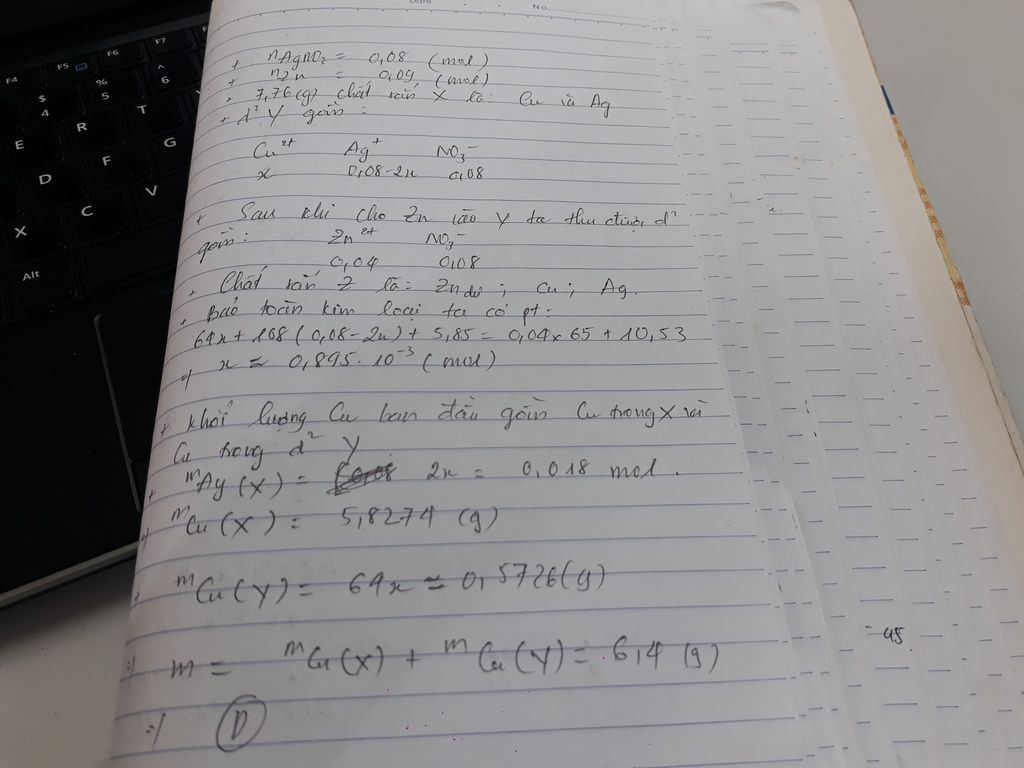 F4 F5 F6 F7
$ 4 % 5 ^ 6
E R T
D F G
X C V
Alt
No.
+ nAgNO₃ = 0,08 (mol)
+ nZn = 0,09 (mol)
+ 7,76(g) chất rắn X là: Cu và Ag
+ d² Y gồm:
Cu²⁺ Ag⁺ NO₃⁻
x 0,08-2x 0,08
+ Sau khi cho Zn vào Y ta thu được d²
gồm: Zn²⁺ NO₃⁻
0,04 0,08
+ Chất rắn Z là: Zn dư ; Cu ; Ag.
+ Bảo toàn kim loại ta có pt:
64x + 108(0,08-2x) + 5,85 = 0,04×65 + 10,53
=> x ≈ 0,895.10⁻³ (mol)
+ Khối lượng Cu ban đầu gồm Cu trong X và
Cu trong d² Y
+ mAg(X) = 2x = 0,018 mol.
=> mCu(X) = 5,8274 (g)
+ mCu(Y) = 64x ≈ 0,5726(g)
=> m = mCu(X) + mCu(Y) = 6,4 (g)
=> D
45